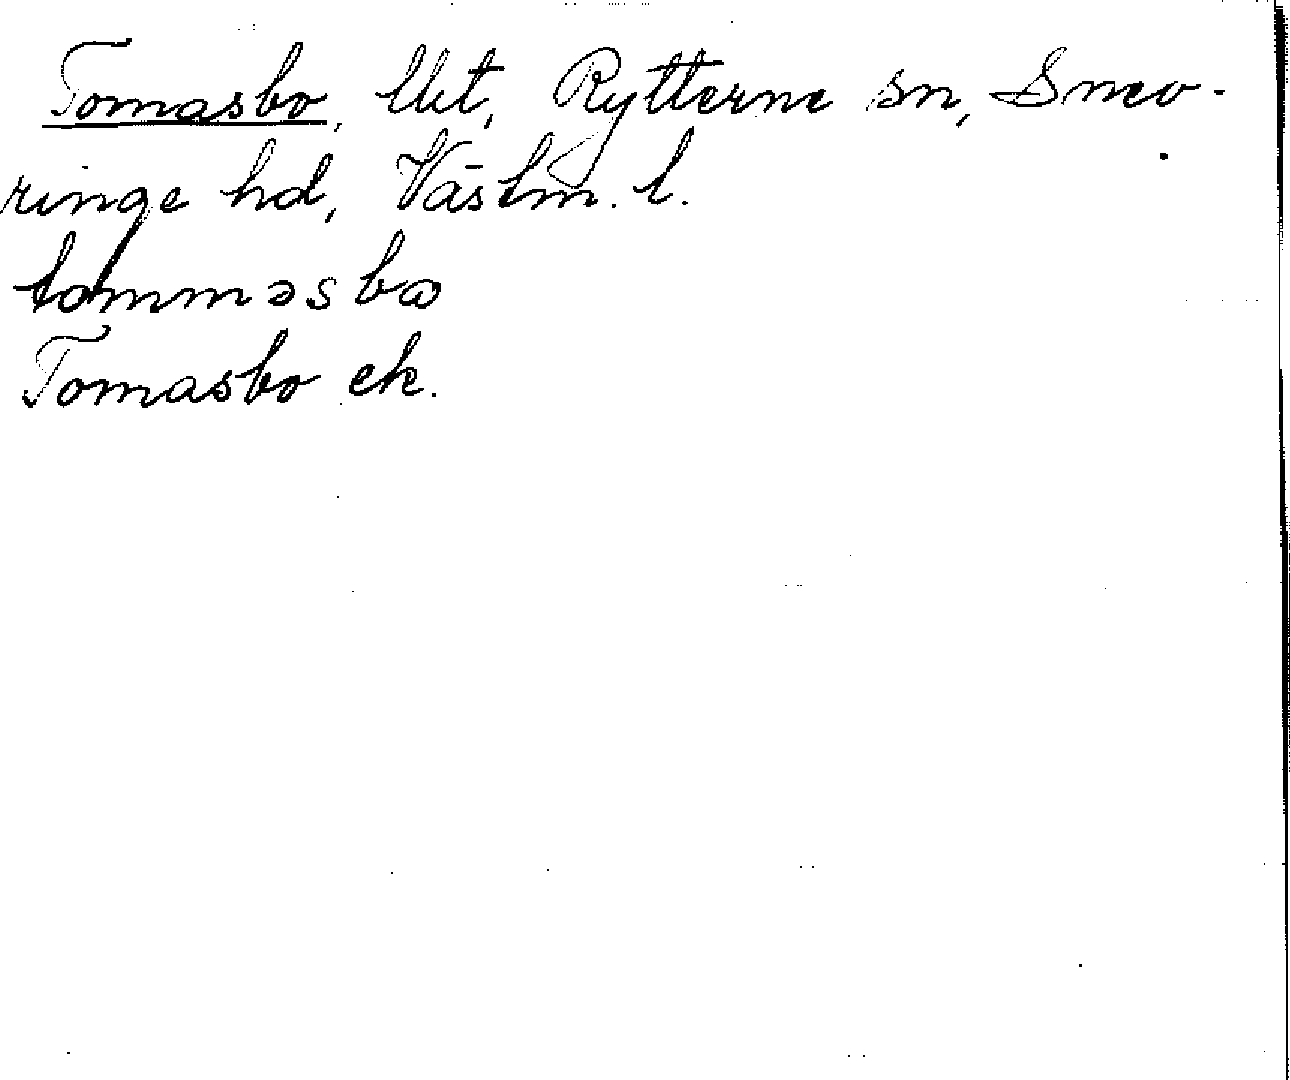 Tomasbo, lht, Rytterne sn, Snev-
ringe hd, Västm. l.
tomməsbω
Tomasbo ek.